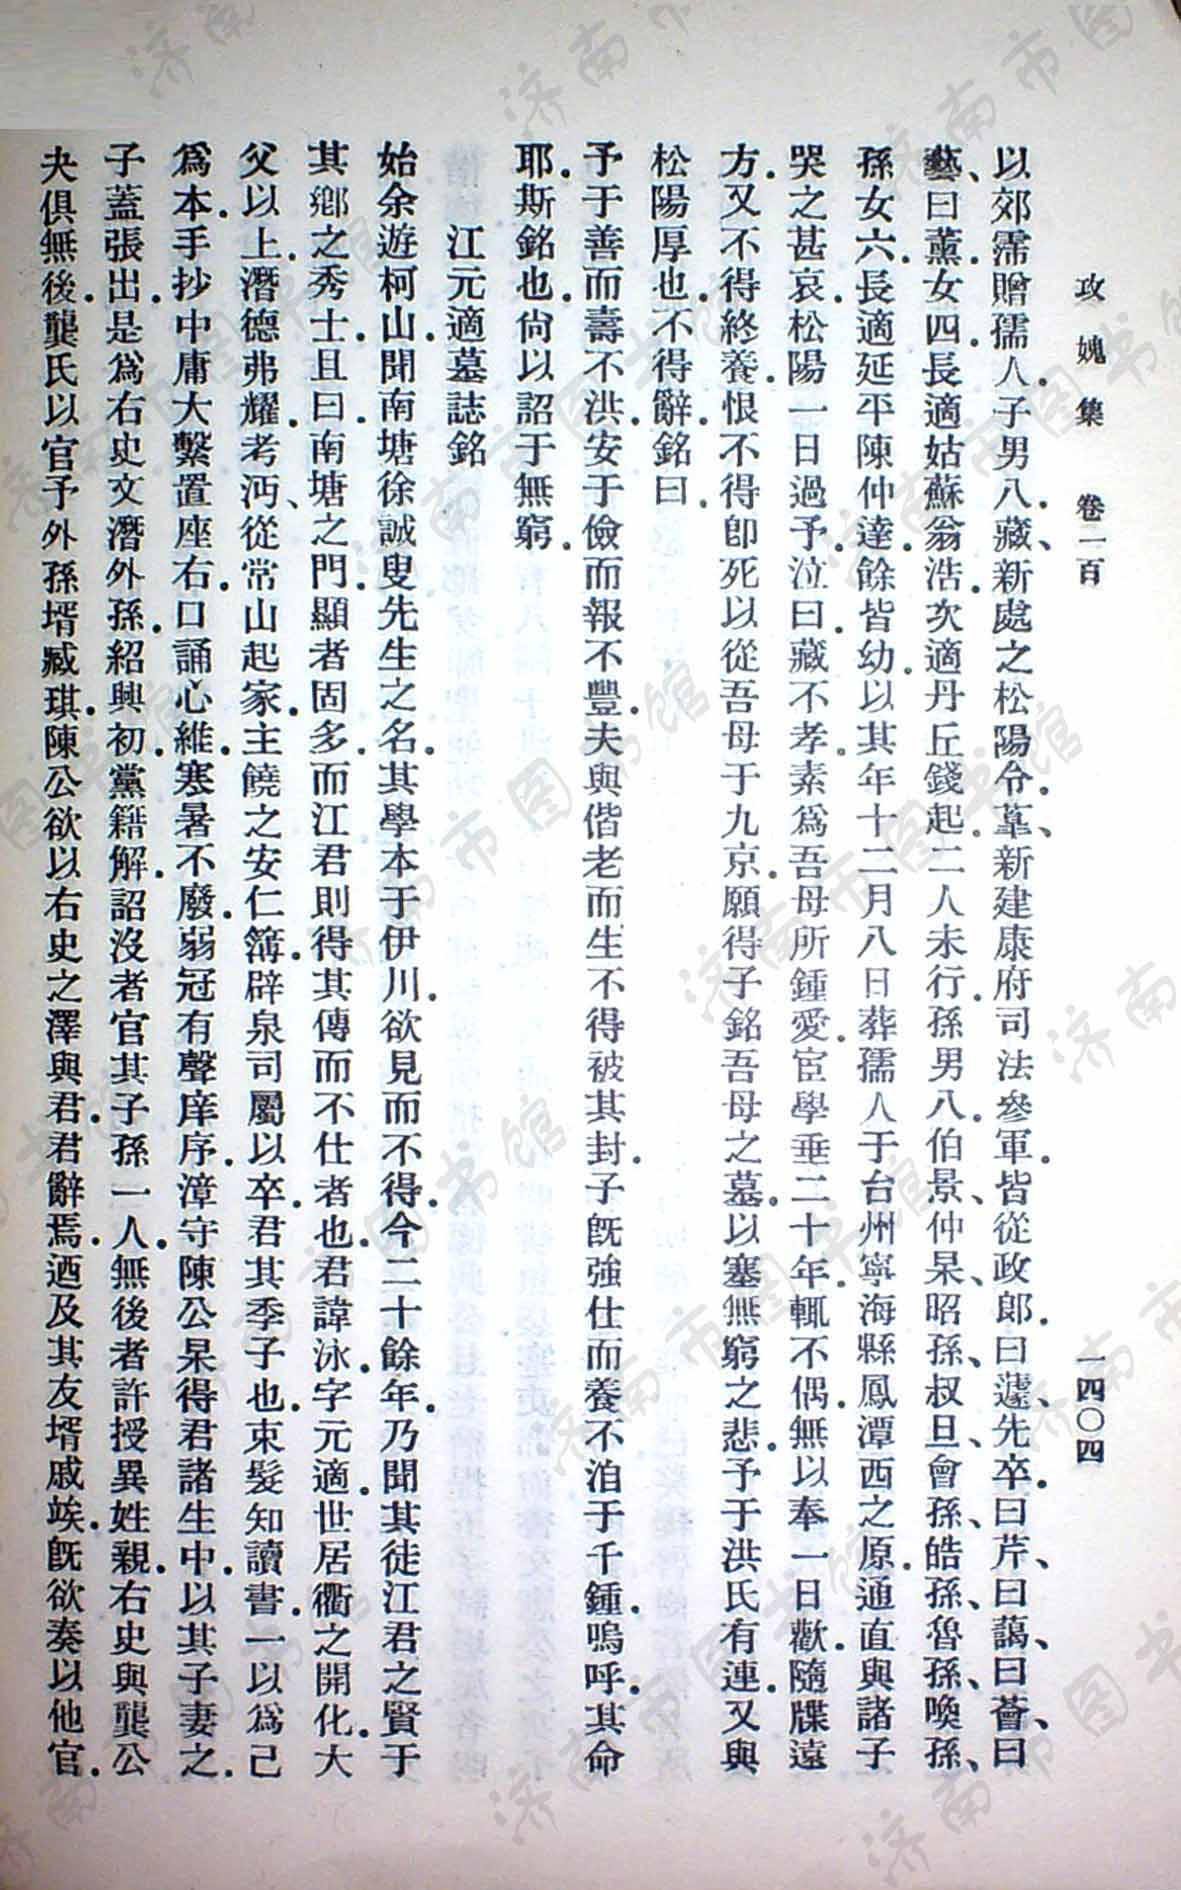 攻媿集　卷一百　一四〇四
以郊霈贈孺人。子男八、藏新處之松陽令。葦、新建康府司法參軍。皆從政郎。曰蘧、先卒。曰芹、曰藹、曰薈、曰
藝、曰薰。女四。長適姑蘇翁浩。次適丹丘錢起。二人未行。孫男八。伯景、仲杲、昭孫、叔旦、會孫、皓孫、魯孫、喚孫、
孫女六。長適延平陳仲達。餘皆幼。以其年十二月八日葬孺人于台州寧海縣鳳潭西之原。通直與諸子
哭之甚哀。松陽一日過予。泣曰。藏不孝。素爲吾母所鍾愛。宦學垂二十年。輒不偶。無以奉一日歡。隨牒遠
方。又不得終養。恨不得卽死以從吾母于九京。願得子銘吾母之墓。以塞無窮之悲。予于洪氏有連。又與
松陽厚也。不得辭。銘曰。
予于善而壽不洪。安于儉而報不豐。夫與偕老而生不得被其封。子旣強仕而養不洎于千鍾。嗚呼。其命
耶。斯銘也。尙以詔于無窮。
江元適墓誌銘
始余遊柯山。聞南塘徐誠叟先生之名。其學本于伊川。欲見而不得。今二十餘年。乃聞其徒江君之賢于
其鄉之秀士。且曰。南塘之門。顯者固多。而江君則得其傳而不仕者也。君諱泳。字元適。世居衢之開化。大
父以上。潛德弗耀。考沔、從常山起家。主饒之安仁簿。辟泉司屬以卒。君其季子也。束髮知讀書。一以爲己
爲本。手抄中庸大繫置座右。口誦心維。寒暑不廢。弱冠有聲庠序。漳守陳公杲得君諸生中。以其子妻之。
子蓋張出。是爲右史文潛外孫。紹興初。黨籍解。詔沒者官其子孫一人。無後者許授異姓親。右史與龔公
夬俱無後。龔氏以官予外孫壻臧琪。陳公欲以右史之澤與君。君辭焉。迺及其友壻戚竢。旣欲奏以他官。